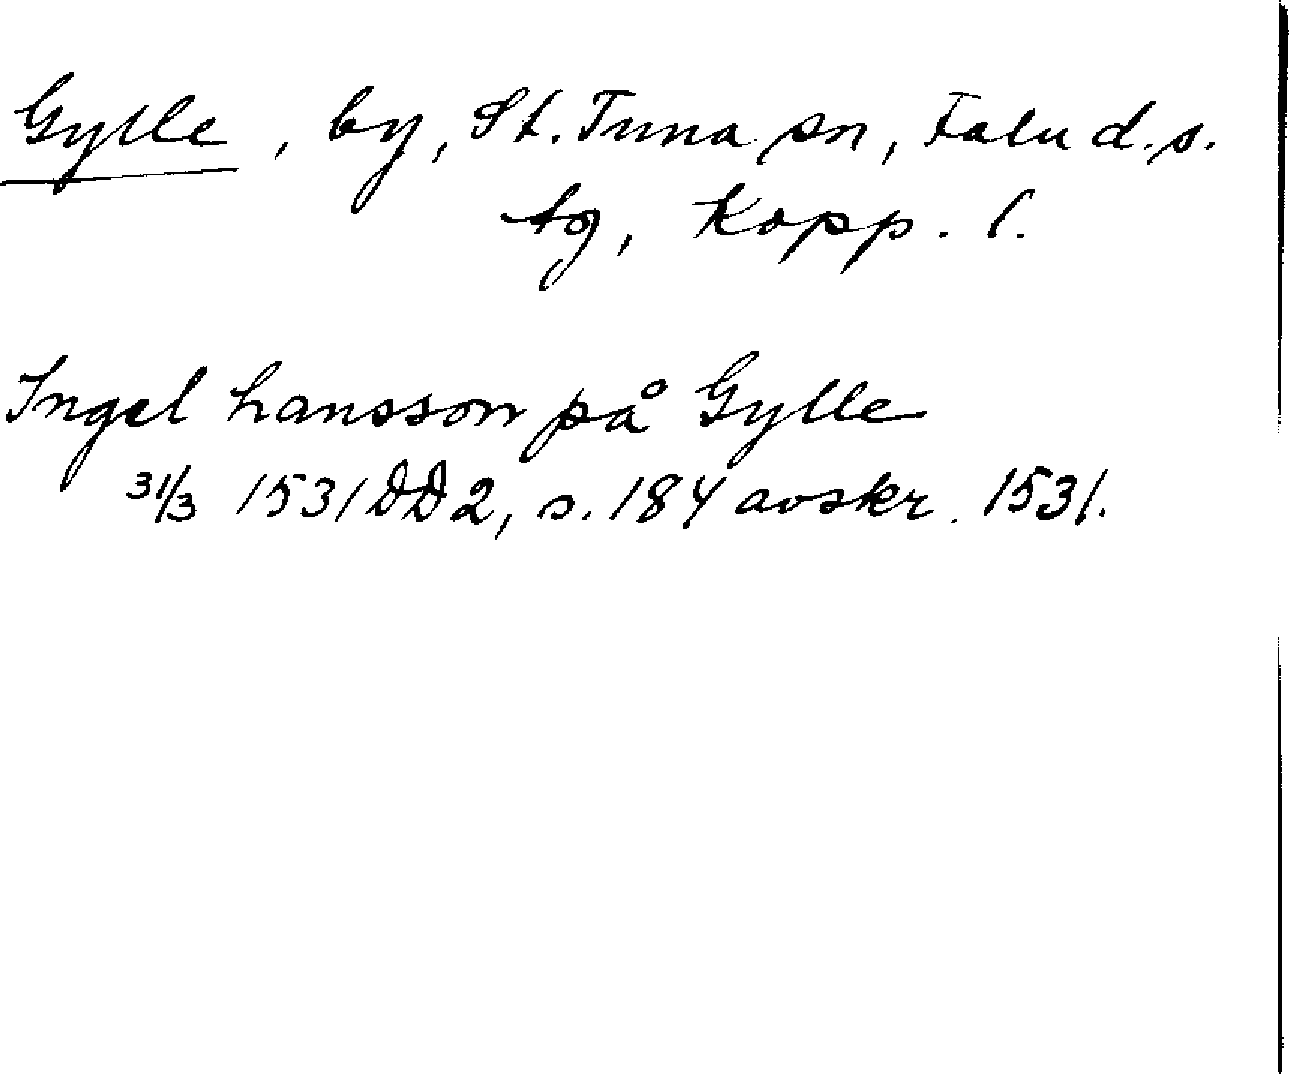 Gylle, by, St. Tuna sn, Falu d.s.
tg, Kopp. l.
Ingel hansson på Gylle
31/3 1531 DD2, s. 184 avskr. 1531.